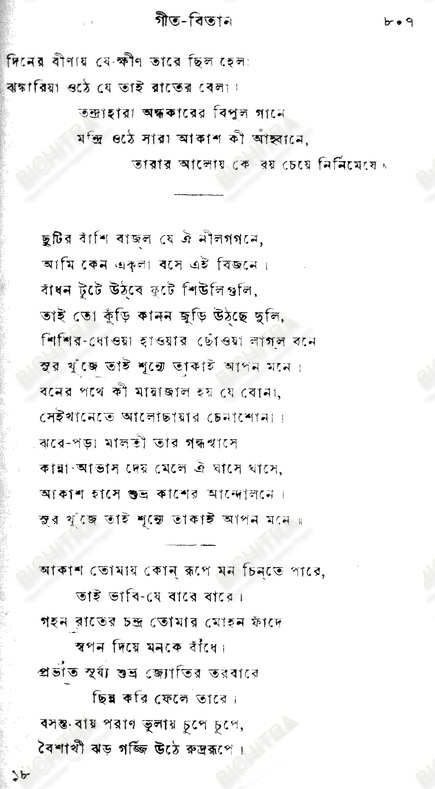 গীত-বিতান ৮০৭
দিনের বীণায় যে-ক্ষীণ তারে ছিল হেলা
ঝঙ্কারিয়া ওঠে যে তাই রাতের বেলা।
তন্দ্রাহারা অন্ধকারের বিপুল গানে
মন্দ্রি ওঠে সারা আকাশ কী আহ্বানে,
তারার আলোয় কে রয় চেয়ে নির্নিমেষে।
ছুটির বাঁশি বাজ্‌ল যে ঐ নীলগগনে,
আমি কেন একলা বসে এই বিজনে।
বাঁধন টুটে উঠ্‌বে ফুটে শিউলিগুলি,
তাই তো কুঁড়ি কানন জুড়ি উঠ্‌ছে দুলি,
শিশির-ধোওয়া হাওয়ার ছোঁওয়া লাগ্‌ল বনে
সুর খুঁজে তাই শূন্যে তাকাই আপন মনে।
বনের পথে কী মায়াজাল হয় যে বোনা,
সেইখানেতে আলোছায়ার চেনাশোনা।
ঝরে-পড়া মালতী তার গন্ধশ্বাসে
কান্না-আভাস দেয় মেলে ঐ ঘাসে ঘাসে,
আকাশ হাসে শুভ্র কাশের আন্দোলনে।
সুর খুঁজে তাই শূন্যে তাকাই আপন মনে॥
আকাশ তোমায় কোন্ রূপে মন চিন্‌তে পারে,
তাই ভাবি-যে বারে বারে।
গহন রাতের চন্দ্র তোমার মোহন ফাঁদে
স্বপন দিয়ে মনকে বাঁধে।
প্রভাত সূর্য্য শুভ্র জ্যোতির তরবারে
ছিন্ন করি ফেলে তারে।
বসন্ত-বায় পরাণ ভুলায় চুপে চুপে,
বৈশাখী ঝড় গর্জ্জি উঠে রুদ্ররূপে।
১৮
BICHITRA